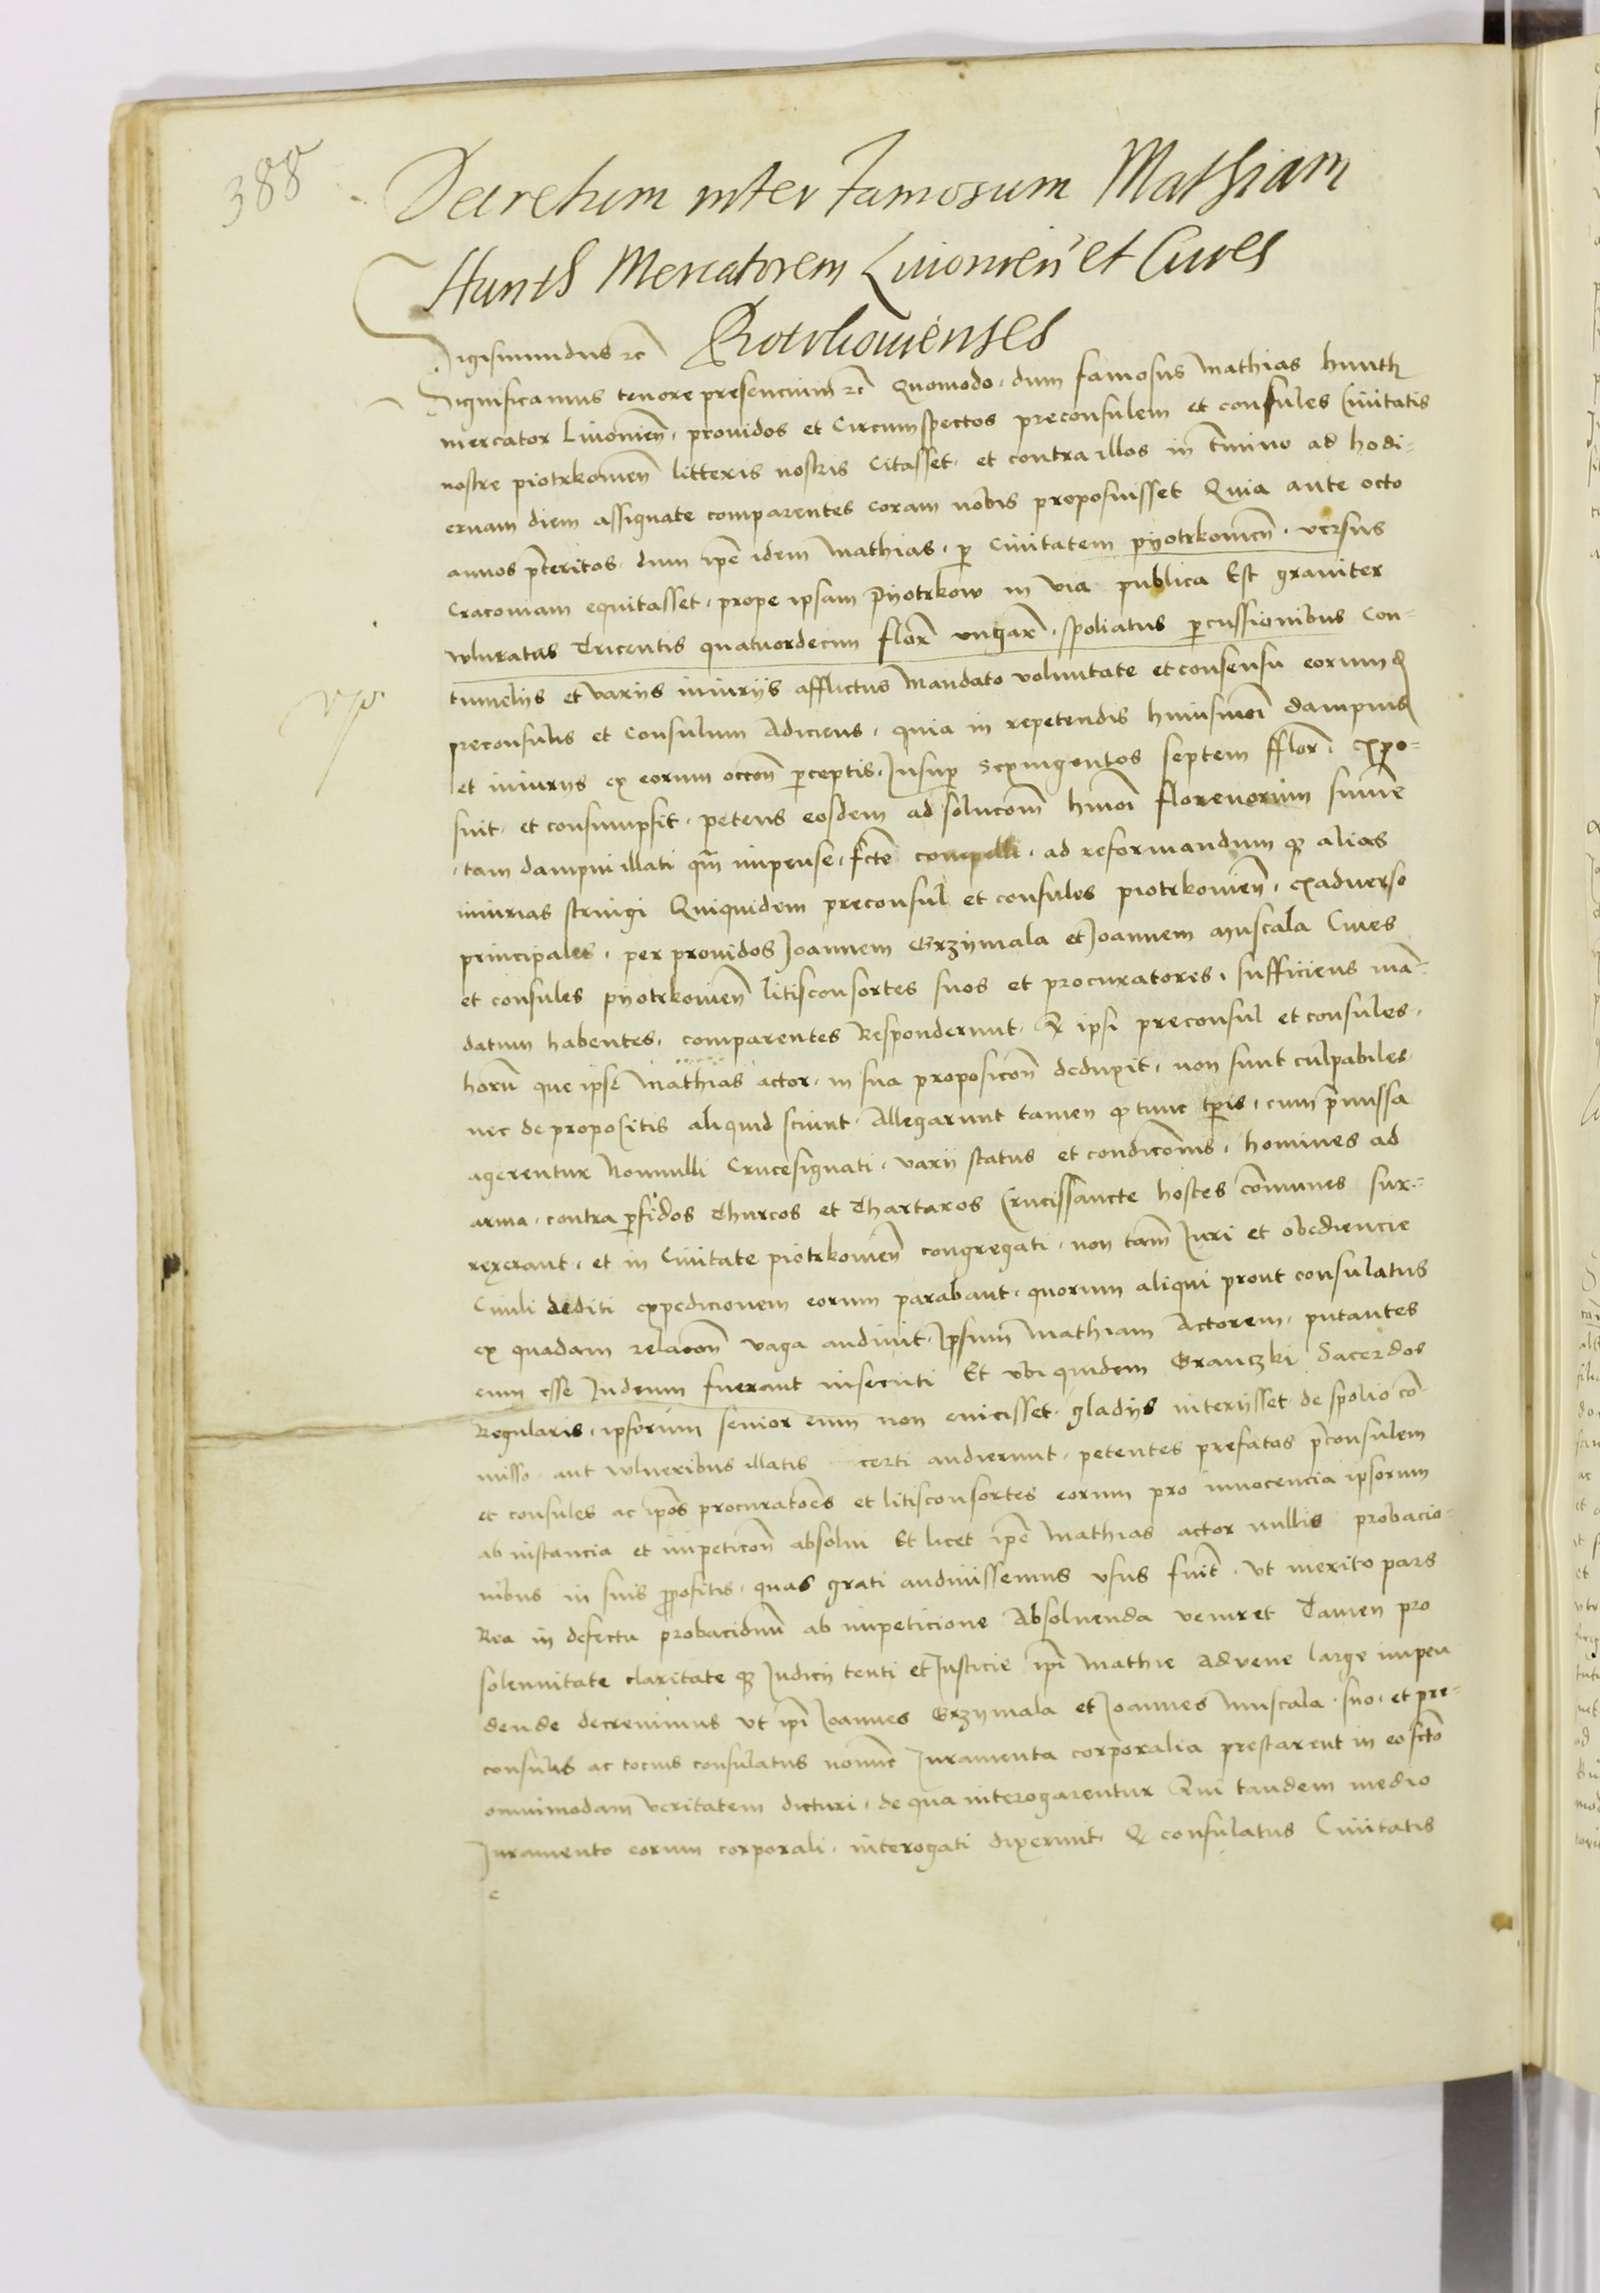 388
Decretum inter Famosum Mathiam
Hunth Mercatorem Liuonien̄ et Ciues
Piotrkouienses
Sigismundus ꝛc̄
Significamus tenore presencium ꝛc̄ Quomodo, dum famosus Mathias Hunth
mercator Liuonien̄, prouidos et Circumspectos preconsulem et consules Ciuitatis
nostre piotrkouien̄ litteris nostris Citasset, et contra illos in t̄mino ad hodi-
ernam diem assignate comparentes coram nobis proposuisset Quia ante octo
annos p̄teritos, dum ip̄e idem Mathias, ꝑ Ciuitatem pyotrkouien̄, versus
Cracouiam equitasset, prope ipsam Pyotrkow in via publica Est grauiter
wlneratus Tricentis quatuordecim flor̄ ungar̄, spoliatus ꝑcussionibus Con-
tumelijs et varijs iniurijs afflictus Mandato voluntate et consensu eorund̄
preconsulis et Consulum Adiciens, quia in repetendis huiusmoi dampnis
et iniurijs ex eorum occ̄on̄ ꝑceptis, Insuꝑ Sexingentos septem fflor̄, expo-
suit, et consumpsit, petens eosdem ad soluc̄om̄ hm̄oi florenorum summe
tam dampni illati qm̄ impense, fc̄te compelli, ad reformandum ꝙ alias
iniurias stringi Quiquidem preconsul et consules piotrkouien̄, exaduerso
principales, per prouidos Joannem Grzymala et Joannem Muscala Ciues
et consules pyotrkouien̄ litisconsortes suos et procuratores, sufficiens man̄-
datum habentes, comparentes Responderunt, Q ipsi preconsul et consules,
horū que ipse Mathias actor, in sua proposic̄on̄ deduxit, non sunt culpabiles
nec de propositis aliquid sciunt, Allegarunt tamen ꝙ tunc tꝑis, cum p̄missa
agerentur Nonnulli Crucesignati, varij status et condic̄onis, homines ad
arma, contra ꝑfidos Thurcos et Thartaros Crucissancte hostes com̄unes sur-
rexerant, et in Ciuitate piotrkouien̄ congregati, non tam̄ Juri et obediencie
Ciuili dediti expedicionem eorum parabant, quorum aliqui prout consulatus
ex quadam relac̄on̄ vaga audiuit, Ipsum Mathiam Actorem, putantes
eum esse Judeum fuerant insecuti Et vbi quidem Granczki Sacerdos
Regularis, ipsorum senior eum non euicisset, gladijs interijsset, de spolio com̄-
misso, aut wlneribus illatis certi audierunt, petentes prefatos p̄consulem
et consules ac ip̄os procurato͞es et litisconsortes eorum pro innocencia ipsorum
ab instancia et impetic̄on̄ absolui Et licet ip̄e Mathias actor nullis probacio-
nibus in suis ꝓpositis, quas grati audiuissemus vsus fuit, Vt merito pars
Rea in defectu probacionū ab impeticione Absoluenda veniret Tamen pro
solennitate claritate ꝙ Judicij tenti et Justicie ip̄i Mathie aduene large impen
dende decreuimus Vt ip̄i Joannes Grzymala et Joannes Muscala, suo, et pre-
consulis ac tocius consulatus nomīe Juramenta corporalia prestarent in eo fc̄to
omnimodam veritatem dicturi, de qua interogarentur Qui tandem medio
Juramento eorum corporali, interogati dixerunt, Q consulatus Ciuitatis